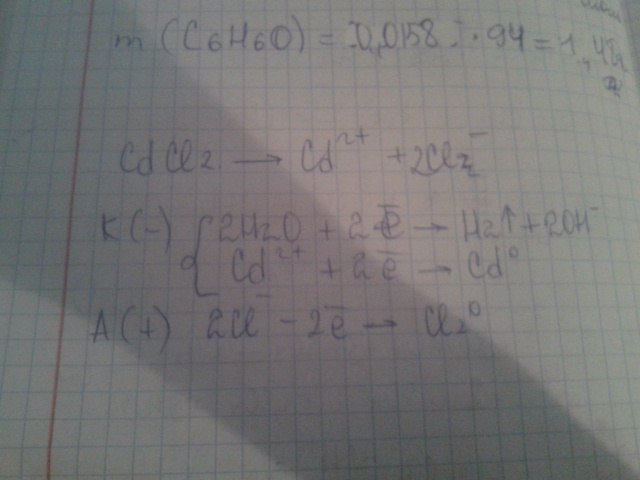 m (C6H6O) = 0,0158 · 94 = 1,48г
CdCl2 → Cd²⁺ + 2Cl⁻
K(-) { 2H2O + 2e̅ → H2↑ + 2OH⁻
Cd²⁺ + 2e̅ → Cd⁰
A(+) 2Cl⁻ - 2e̅ → Cl2⁰